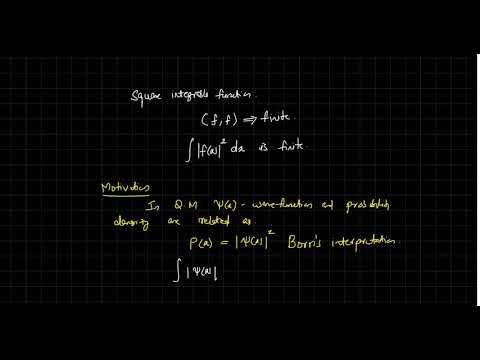 Square integrable function.
(f, f) ⇒ finite.
∫ |f(x)|² dx is finite.
Motivation
In Q.M ψ(x) - wave-function and probability
density are related as.
P(x) = |ψ(x)|² Born's interpretation
∫ |ψ(x)|